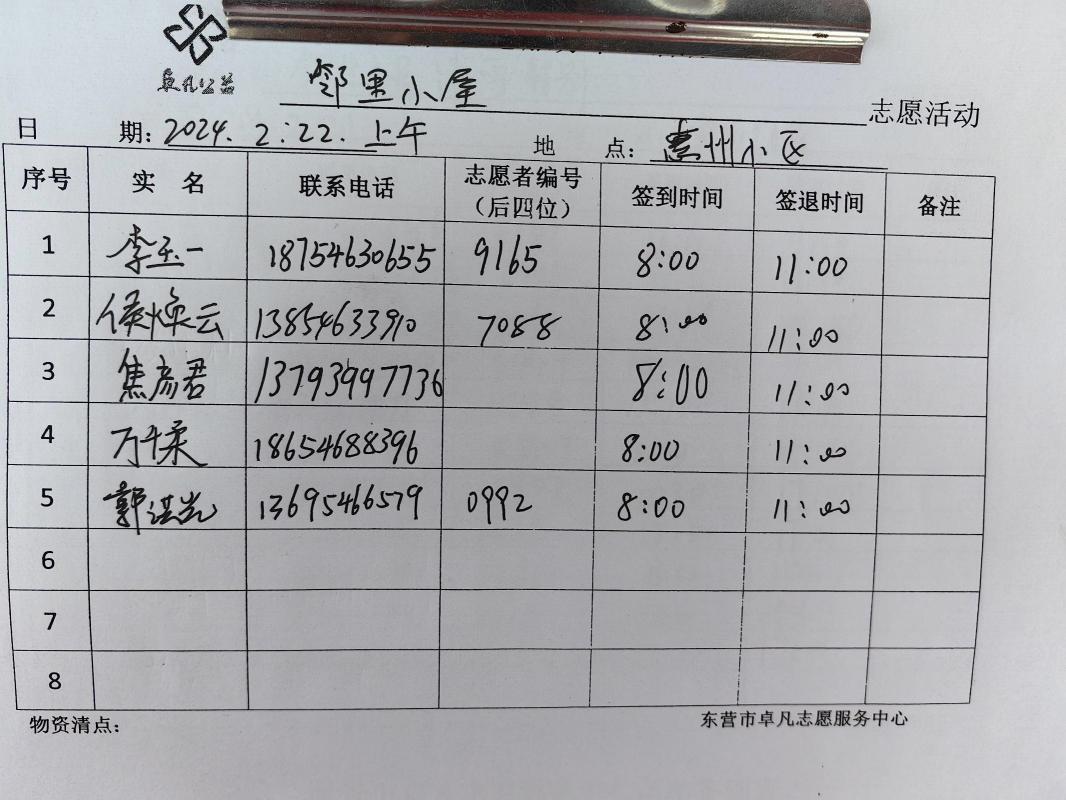 卓凡公益
邻里小屋 志愿活动
日 期: 2024. 2:22. 上午 地 点: 惠州小区
序号 实 名 联系电话 志愿者编号（后四位） 签到时间 签退时间 备注
1 李玉一 18754630655 9165 8:00 11:00
2 侯焕云 13854633910 7088 8:00 11:00
3 焦彦君 13793997736 8:00 11:00
4 万千柔 18654688396 8:00 11:00
5 郭洪光 13695466579 0992 8:00 11:00
6
7
8
物资清点： 东营市卓凡志愿服务中心